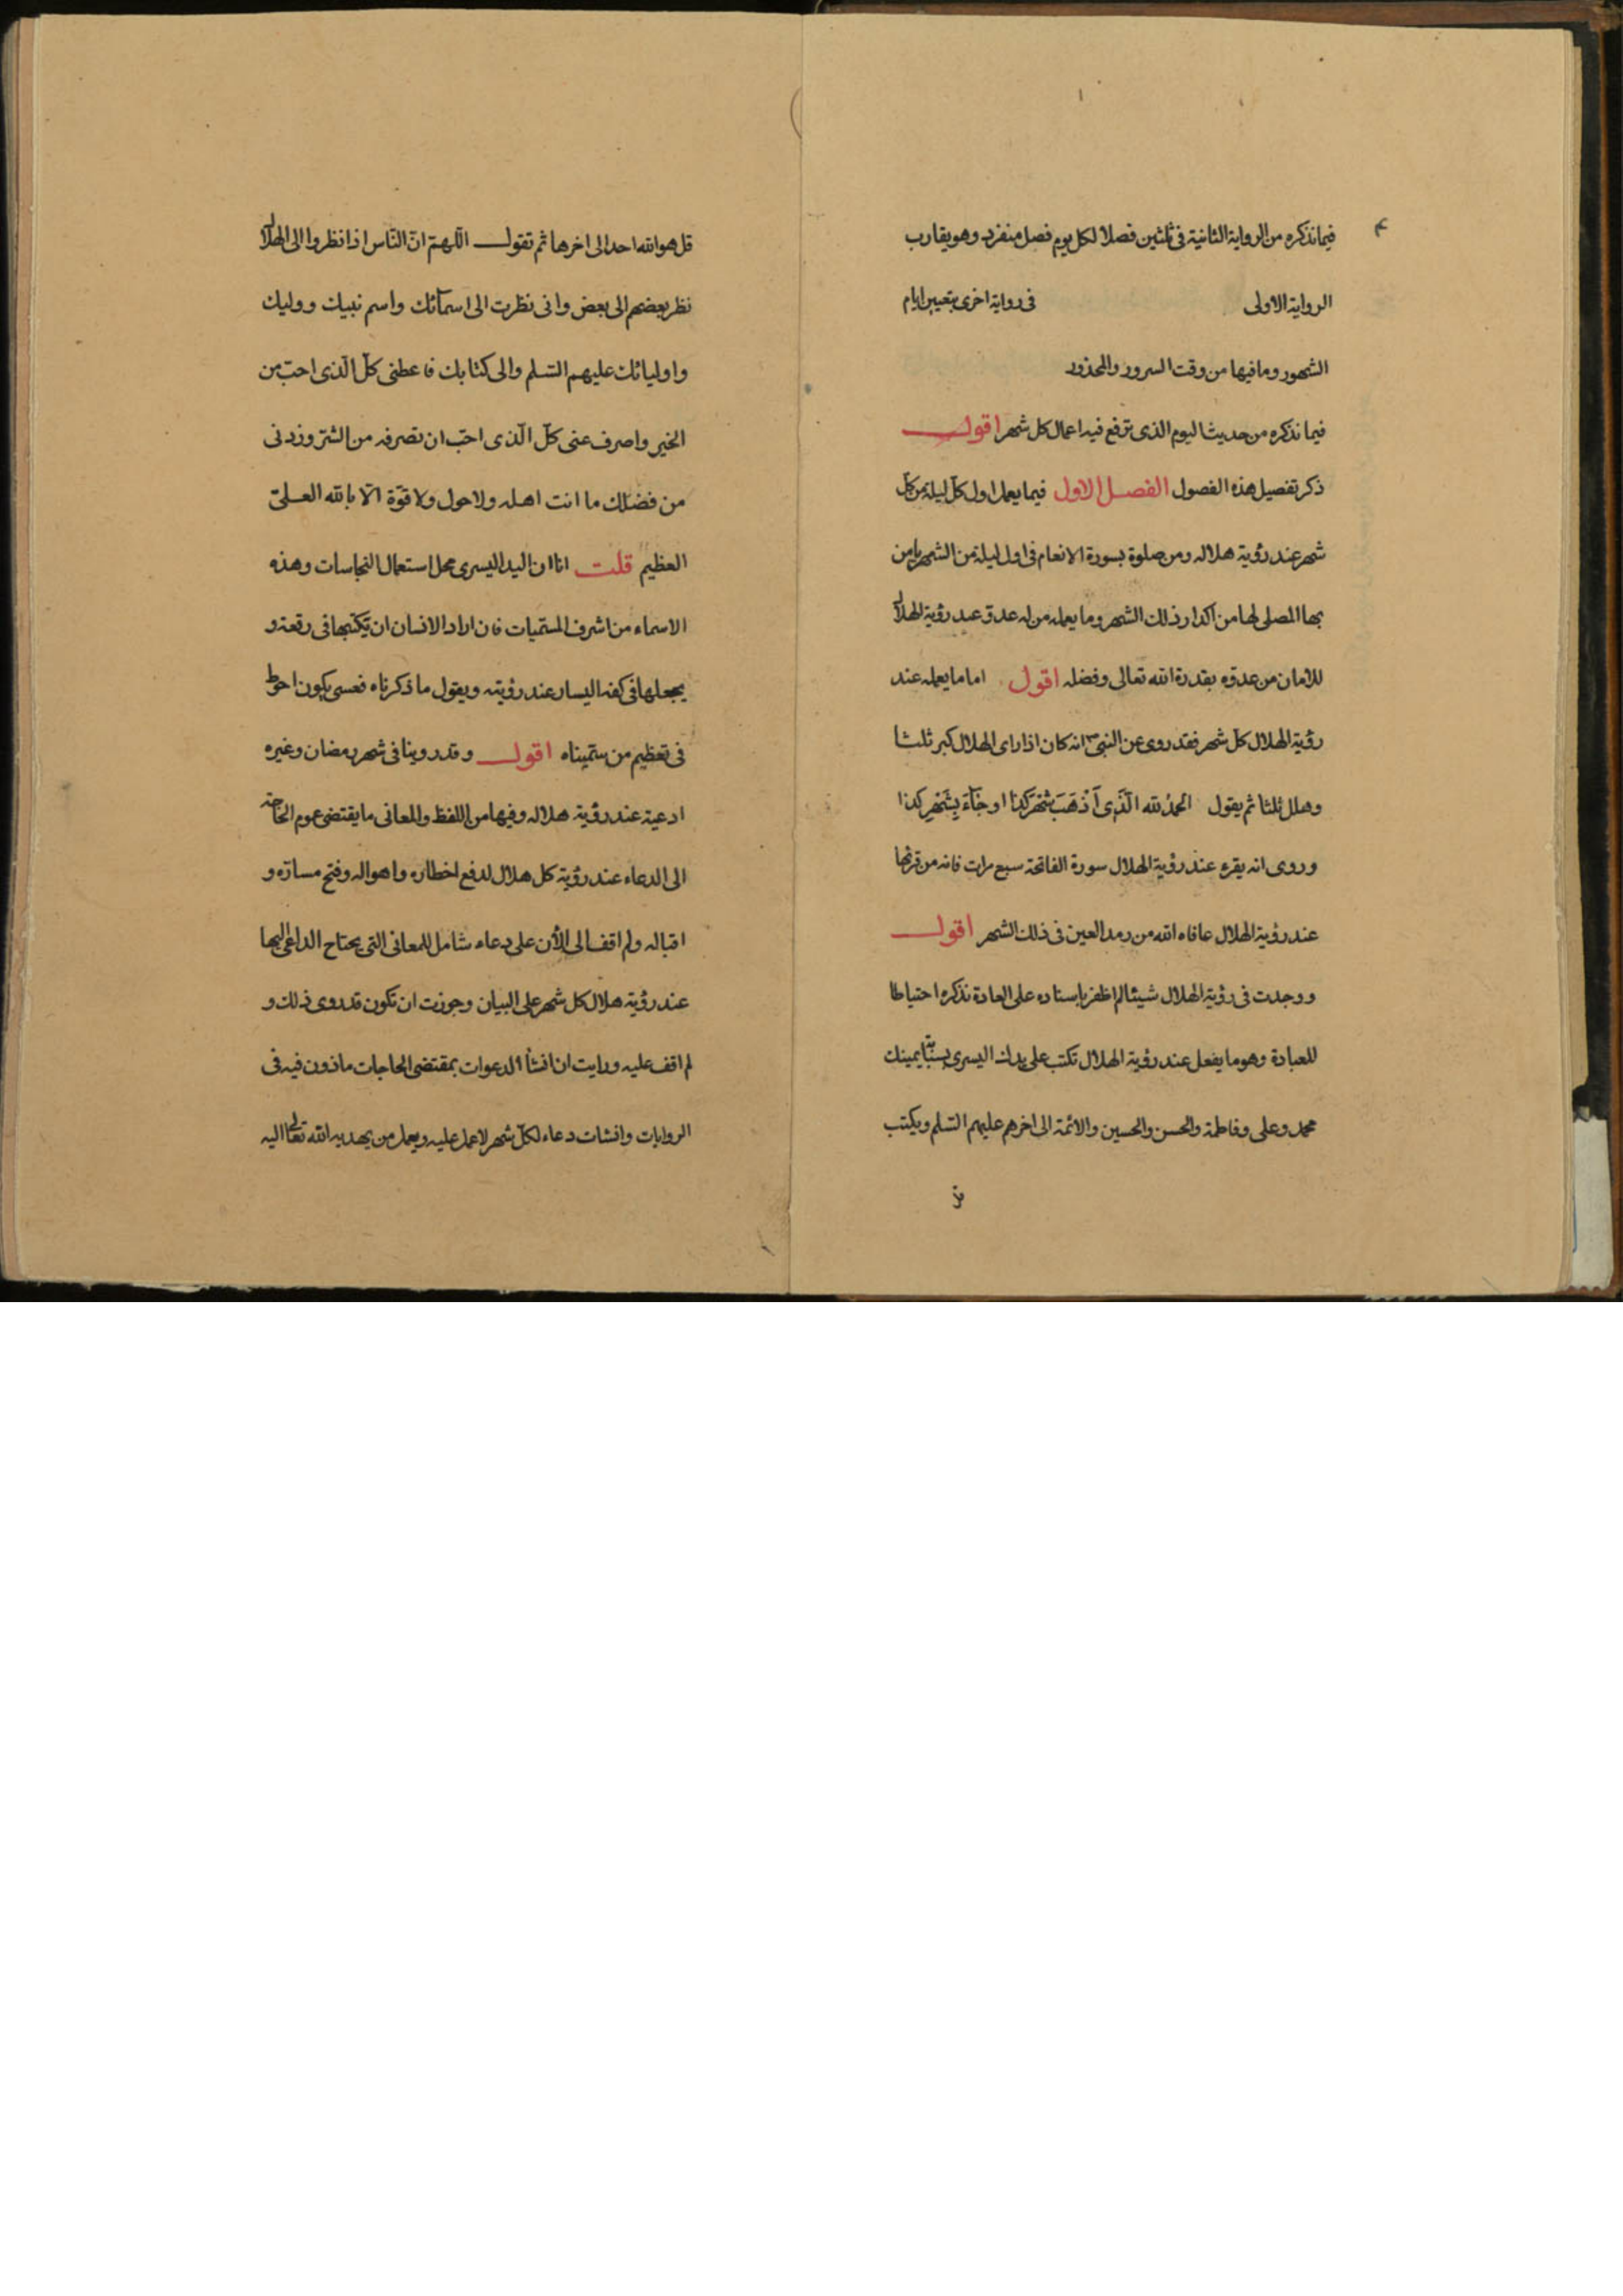 ٤
فيما نذكره من الرواية الثانية فى ثلثين فصلا لكل يوم فصل منفرد وهو يقارب
الرواية الاولى فى رواية اخرى بتعيين ايام
الشهور وما فيها من وقت السرور والمحذور
فيما نذكره من حديث اليوم الذى ترفع فيه اعمال كل شهر اقول
ذكر تفصيل هذه الفصول الفصل الاول فيما يعمل اول كلّ ليلة من كلّ
شهر عند رؤية هلاله ومن صلوة بسورة الانعام فى اول ليلة من الشهر يامن
بها المصلى لها من اكدار ذلك الشهر وما يعمله من له عدوّ عند رؤية الهلال
للامان من عدوّه بقدرة الله تعالى وفضله اقول اما ما يعمله عند
رؤية الهلال كلّ شهر فقد روى عن النبى ص انه كان اذا راى الهلال كبر ثلثا
وهلل ثلثا ثم يقول الحمدُ لله الَّذى اَذْهَبَ شَهْرَ كذا اوجَآءَ بِشَهْرِ كذا
وروى انه يقرء عند رؤية الهلال سورة الفاتحة سبع مرات فانه من قرئها
عند رؤية الهلال عافاه الله من رمد العين فى ذلك الشهر اقول
ووجدت فى رؤية الهلال شيئا لم اظفر باسناده على العادة نذكره احتياطا
للعبادة وهو ما يفعل عند رؤية الهلال تكتب على يدك اليسرى بسبّابة يمينك
محمد وعلى وفاطمة والحسن والحسين والائمة الى اخرهم عليهم السّلم ويكتب
قل هو الله احد الى اخرها ثم تقول اللّهمّ انّ النّاس اذا نظروا الى الهلال
نظر بعضهم الى بعض وانى نظرت الى اسمآئك واسم نبيك ووليك
واوليائك عليهم السّلم والى كتابك فاعطنى كلّ الّذى احبّ من
الخير واصرف عنى كلّ الّذى احبّ ان تصرفه من الشرّ وزدنى
من فضلك ما انت اهله ولا حول ولا قوّة الّا بالله العلىّ
العظيم قلت انا ان اليد اليسرى محل استعمال النجاسات وهذه
الاسماء من اشرف المسمّيات فان اراد الانسان ان يكتبها فى رقعة و
يجعلها فى كفه اليسار عند رؤيته ويقول ما ذكرناه فعسى يكون احوط
فى تعظيم من سمّيناه اقول وقد روينا فى شهر رمضان وغيره
ادعية عند رؤية هلاله وفيها من اللفظ والمعانى ما يقتضى عموم الحاجة
الى الدعاء عند رؤية كل هلال لدفع اخطاره واهواله وفتح مسارّه و
اقباله ولم اقف الى الأن على دعاء شامل للمعانى التى يحتاج الداعى اليها
عند رؤية هلال كل شهر على البيان وجوزت ان تكون قد روى ذلك و
لم اقف عليه ورايت ان انشأ الدعوات بمقتضى الحاجات ماذون فيه فى
الروايات وانشات دعاء لكلّ شهر لاعمل عليه ويعمل من يهديه الله تعالى اليه